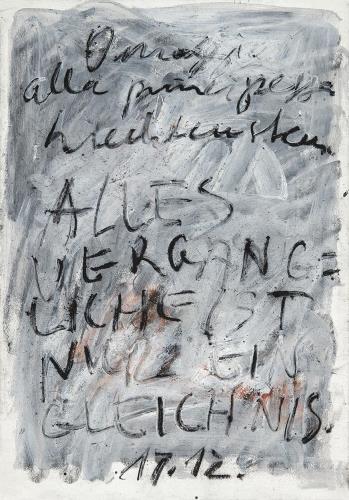 Omaggio
alla principessa
Liechtenstein.
ALLES
VERGÄNG=
LICHE IST
NUR EIN
GLEICHNIS.
17.12.